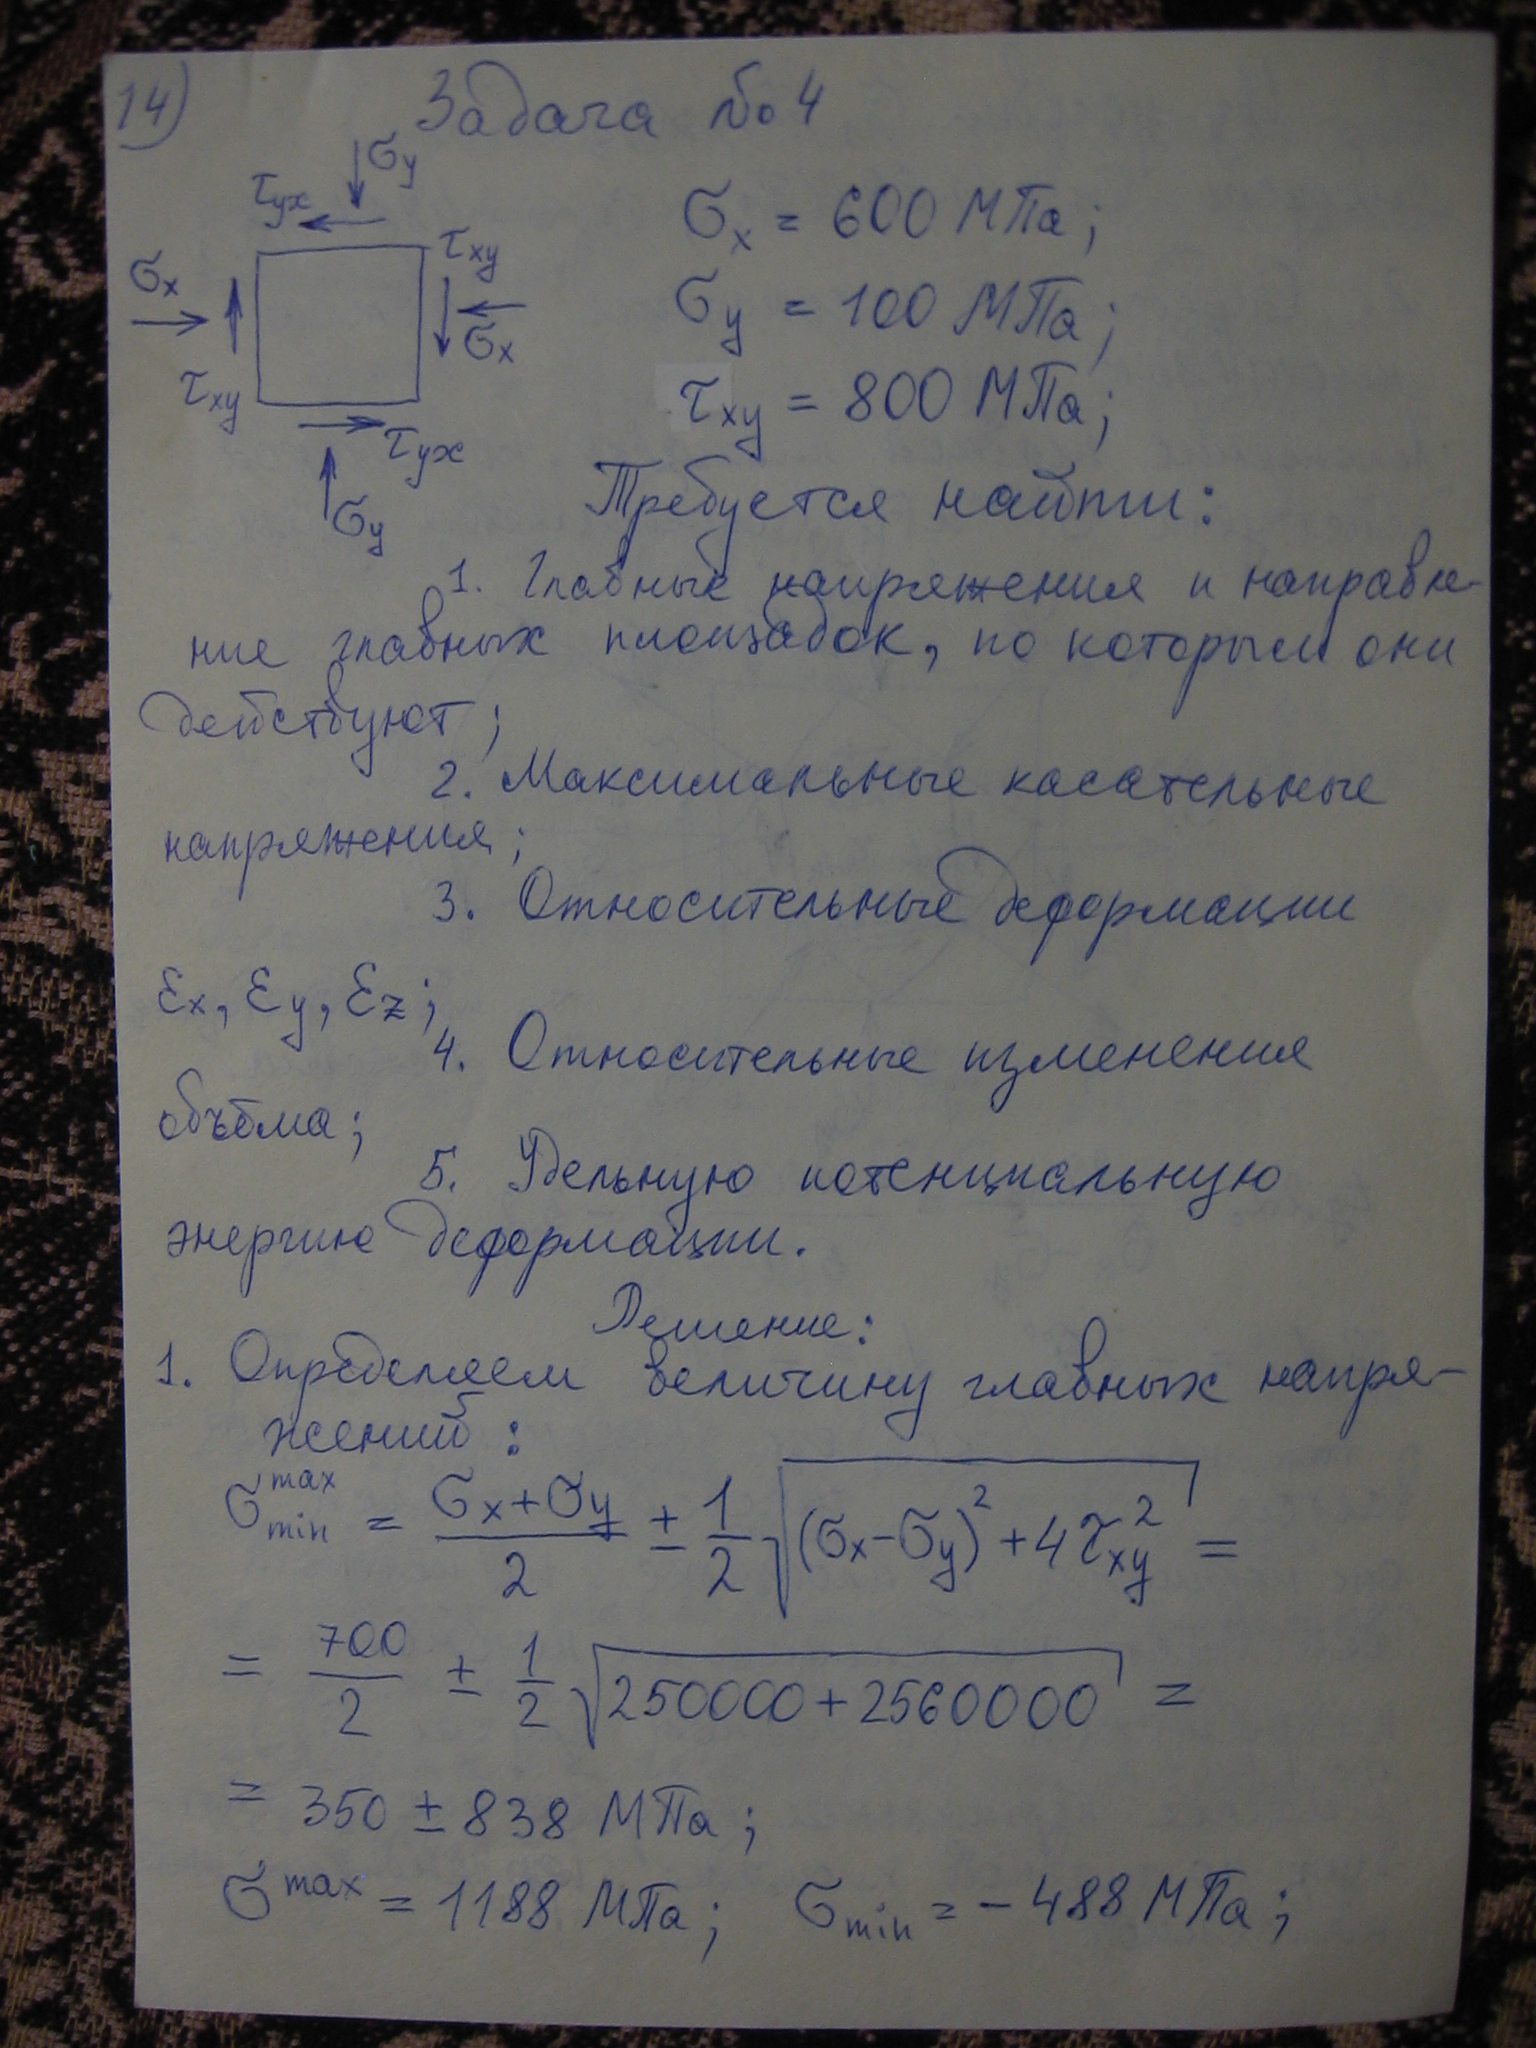 14) Задача №4
σy
τyx
τxy
σx
σx
τxy
τyx
σy
σx = 600 МПа;
σy = 100 МПа;
τxy = 800 МПа;
Требуется найти:
1. Главные напряжения и направле-
ние главных площадок, по которым они
действуют;
2. Максимальные касательные
напряжения;
3. Относительные деформации
εx, εy, εz;
4. Относительные изменения
объёма;
5. Удельную потенциальную
энергию деформации.
Решение:
1. Определяем величину главных напря-
жений:
σ^max_min = (σx+σy)/2 ± 1/2 √((σx-σy)²+4τxy²) =
= 700/2 ± 1/2 √(250000+2560000) =
= 350 ± 838 МПа;
σ^max = 1188 МПа; σmin = -488 МПа;